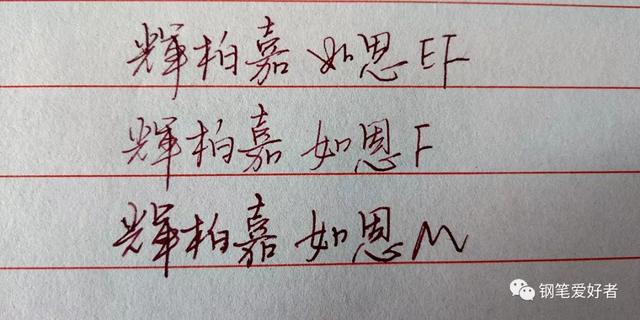 輝柏嘉 如恩 EF
輝柏嘉 如恩 F
輝柏嘉 如恩 M
钢笔爱好者